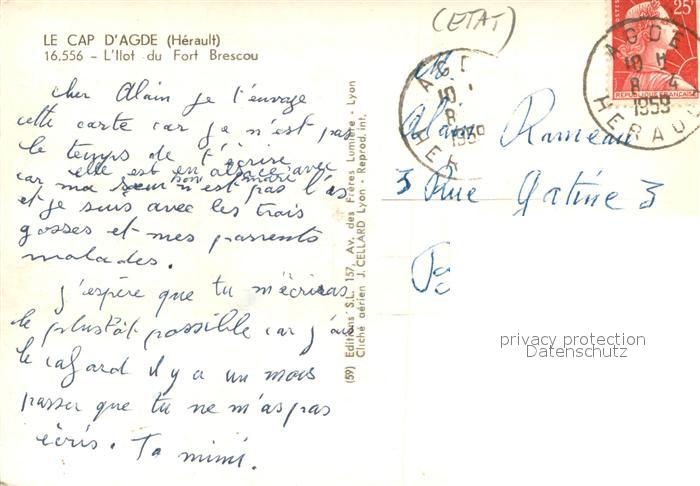 LE CAP D'AGDE (Hérault)
16.556 - L'Ilot du Fort Brescou
cher Alain je t'envoye
cette carte car je n'est pas
le temps de t'écrire
elle est en alsace avec
son mari
car ma seur n'est pas l'as
et je suis avec les trois
gosses et mes parrents
malades.
j'espère que tu m'écriras
le plustôt possible car j'ai
le cafard il y a un mois
passer que tu ne m'as pas
écris. Ta mimi.
(59) Editions S.L. 157, Av. des Frères Lumière - Lyon
Cliché aérien J. CELLARD Lyon - Reprod. int.
(ETAT)
AGDE
10
8
1959
HER
25
POSTES
REPUBLIQUE FRANÇAISE
AGDE
10 H
8 4
1959
HERAULT
Mr
Alain Rameau
3 Rue Gatine 3
privacy protection
Datenschutz